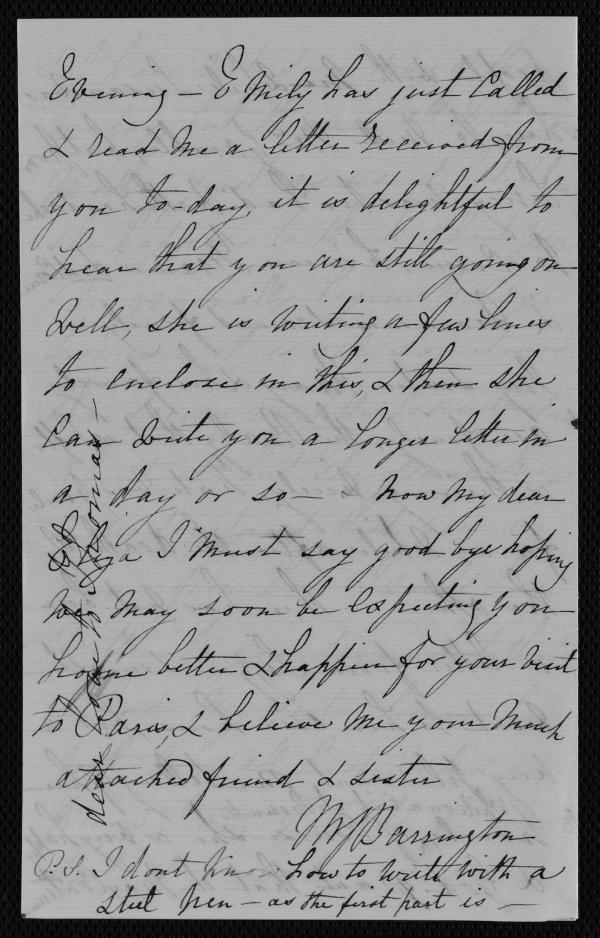 Evening — Emily has just called
& read me a letter received from
you to-day, it is delightful to
hear that you are still going on
well, she is writing a few lines
to enclose in this, & then she
can write you a longer letter in
a day or so — now my dear
I must say good bye hoping
we may soon be expecting you
home better & happier for your visit
to Paris, & believe me your much
attached friend & sister
M J Barrington
P.S. I dont know how to write with a
steel pen — as the first part is —
dear love to Thomas —